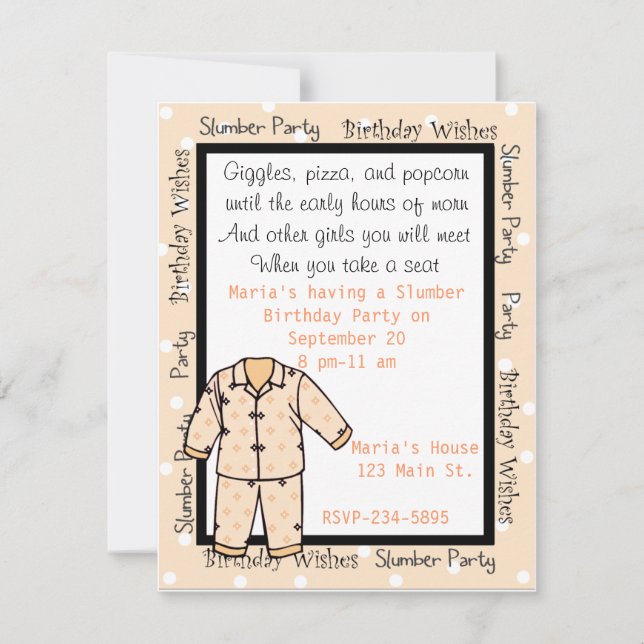 Slumber Party Birthday Wishes
Birthday Wishes
Party
Slumber Party
Slumber Party
Party
Birthday Wishes
Giggles, pizza, and popcorn
until the early hours of morn
And other girls you will meet
When you take a seat
Maria's having a Slumber
Birthday Party on
September 20
8 pm-11 am
Maria's House
123 Main St.
RSVP-234-5895
Birthday Wishes Slumber Party